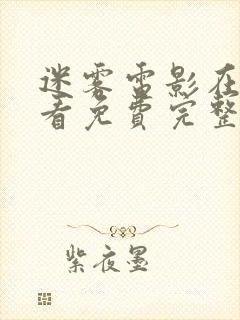 迷雾雷影在
看免费完整
紫夜墨